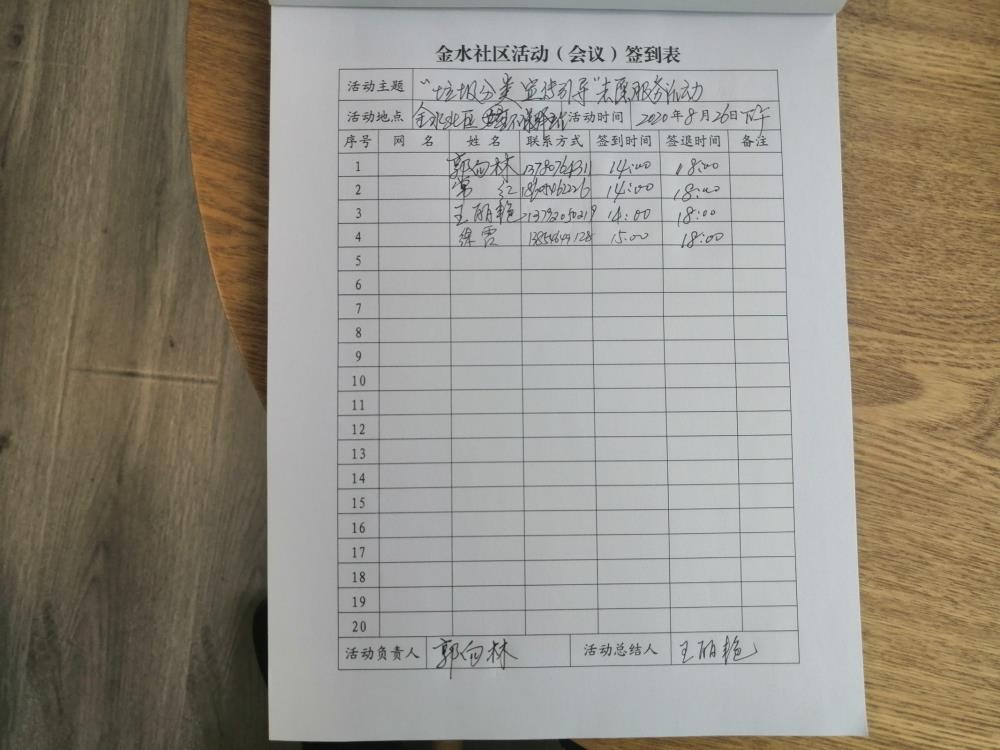 金水社区活动（会议）签到表
活动主题 “垃圾分类宣传引导”志愿服务活动
活动地点 金水社区 活动时间 2020年8月26日下午
序号 网 名 姓 名 联系方式 签到时间 签退时间 备注
1 郭向林 14:00 18:00
2 常 红 14:00 18:00
3 王丽艳 14:00 18:00
4 徐霞 15:00 18:00
5
6
7
8
9
10
11
12
13
14
15
16
17
18
19
20
活动负责人 郭向林 活动总结人 王丽艳